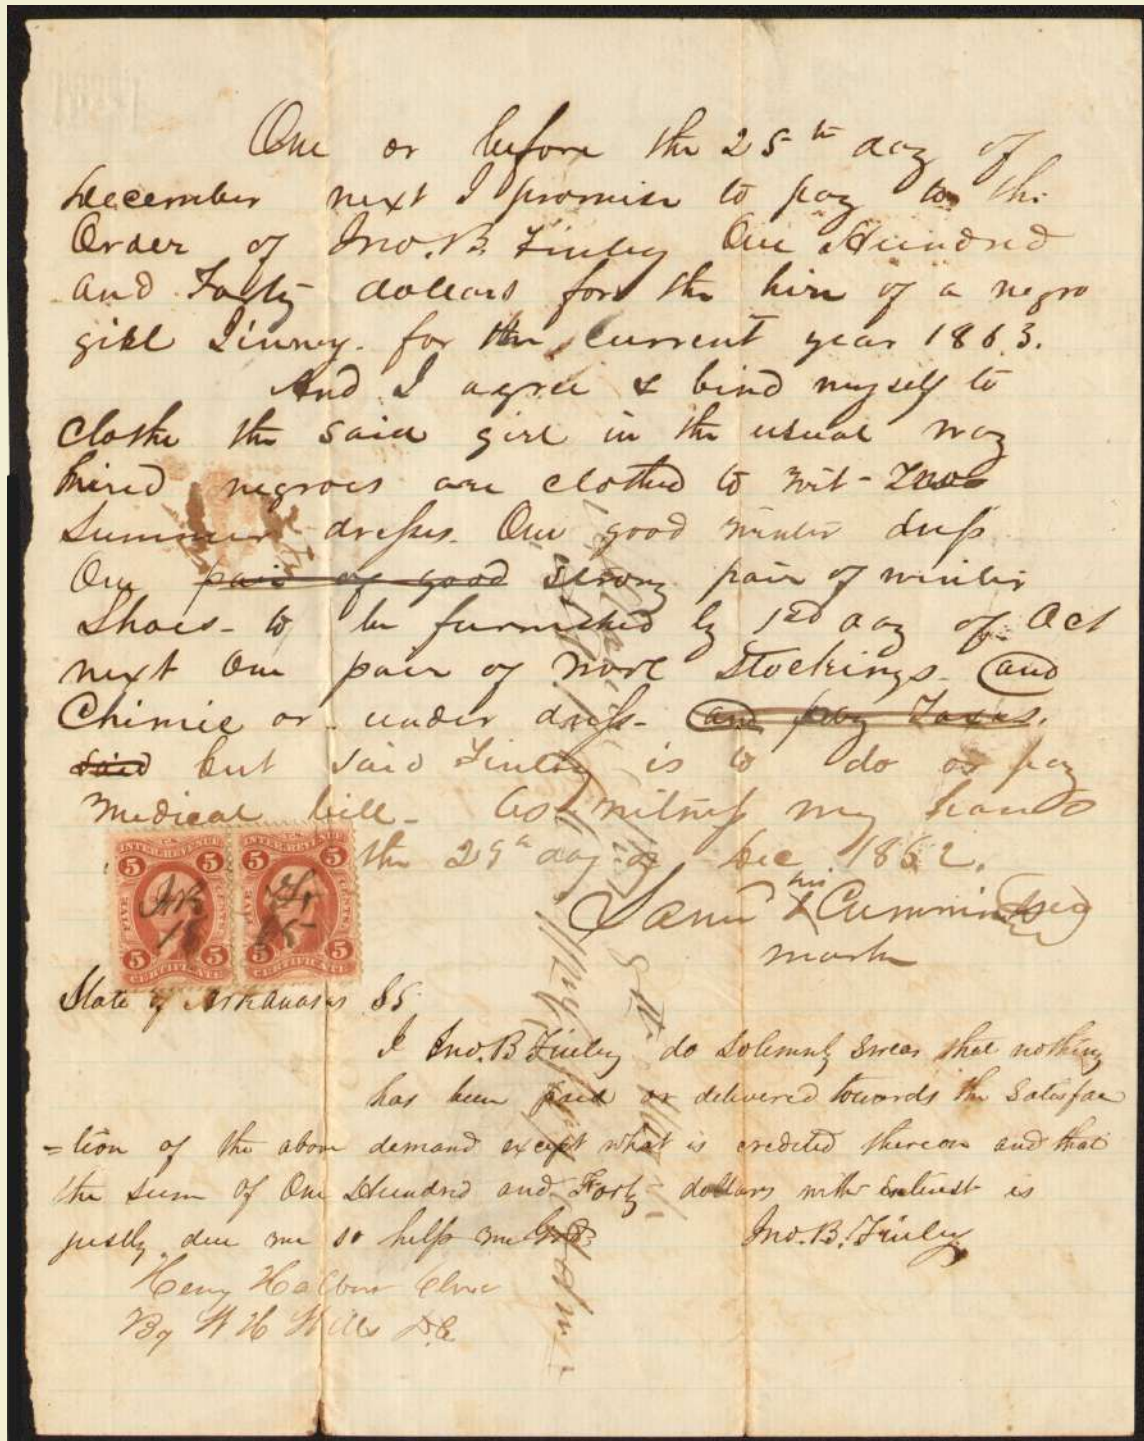 One or before the 25th day of
December next I promise to pay to the
Order of Jno. B. Finley One Hundred
and Forty dollars for the hire of a negro
girl Jinney. for the current year 1863.
And I agree & bind myself to
Clothe the said girl in the usual way
hired negroes are clothed to wit - Two
Summer dresses. One good winter dress
One pair of good strong pair of winter
Shoes - to be furnished by 1st day of Oct
next One pair of wool Stockings - and
Chimie or under dress - and pay Taxes.
said but said Finley is to do or pay
Medical bill - As witness my hand
the 29th day of Dec 1862.
his
Saml X Cummins
mark
U.S. INTER. REVENUE
5 5
FIVE CENTS
5 5
CERTIFICATE
State of Arkansas SS.
I Jno. B Finley do Solemnly Swear that nothing
has been paid or delivered towards the Satisfac
=tion of the above demand except what is credited thereon and that
the sum of One Hundred and Forty dollars with interest is
justly due me so help me God
Jno. B. Finley
Henry Halbert Clerk
By W H Wills D.C.